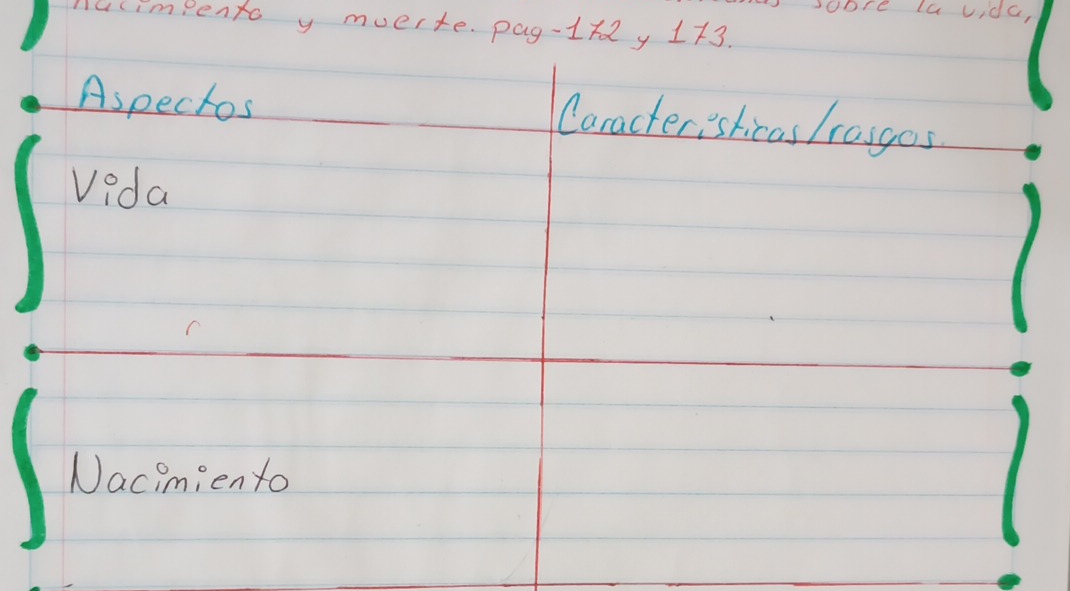 nacimiento sobre la vida,
y muerte. pag-172 y 173.
Aspectos
Características/rasgos.
Vida
Nacimiento